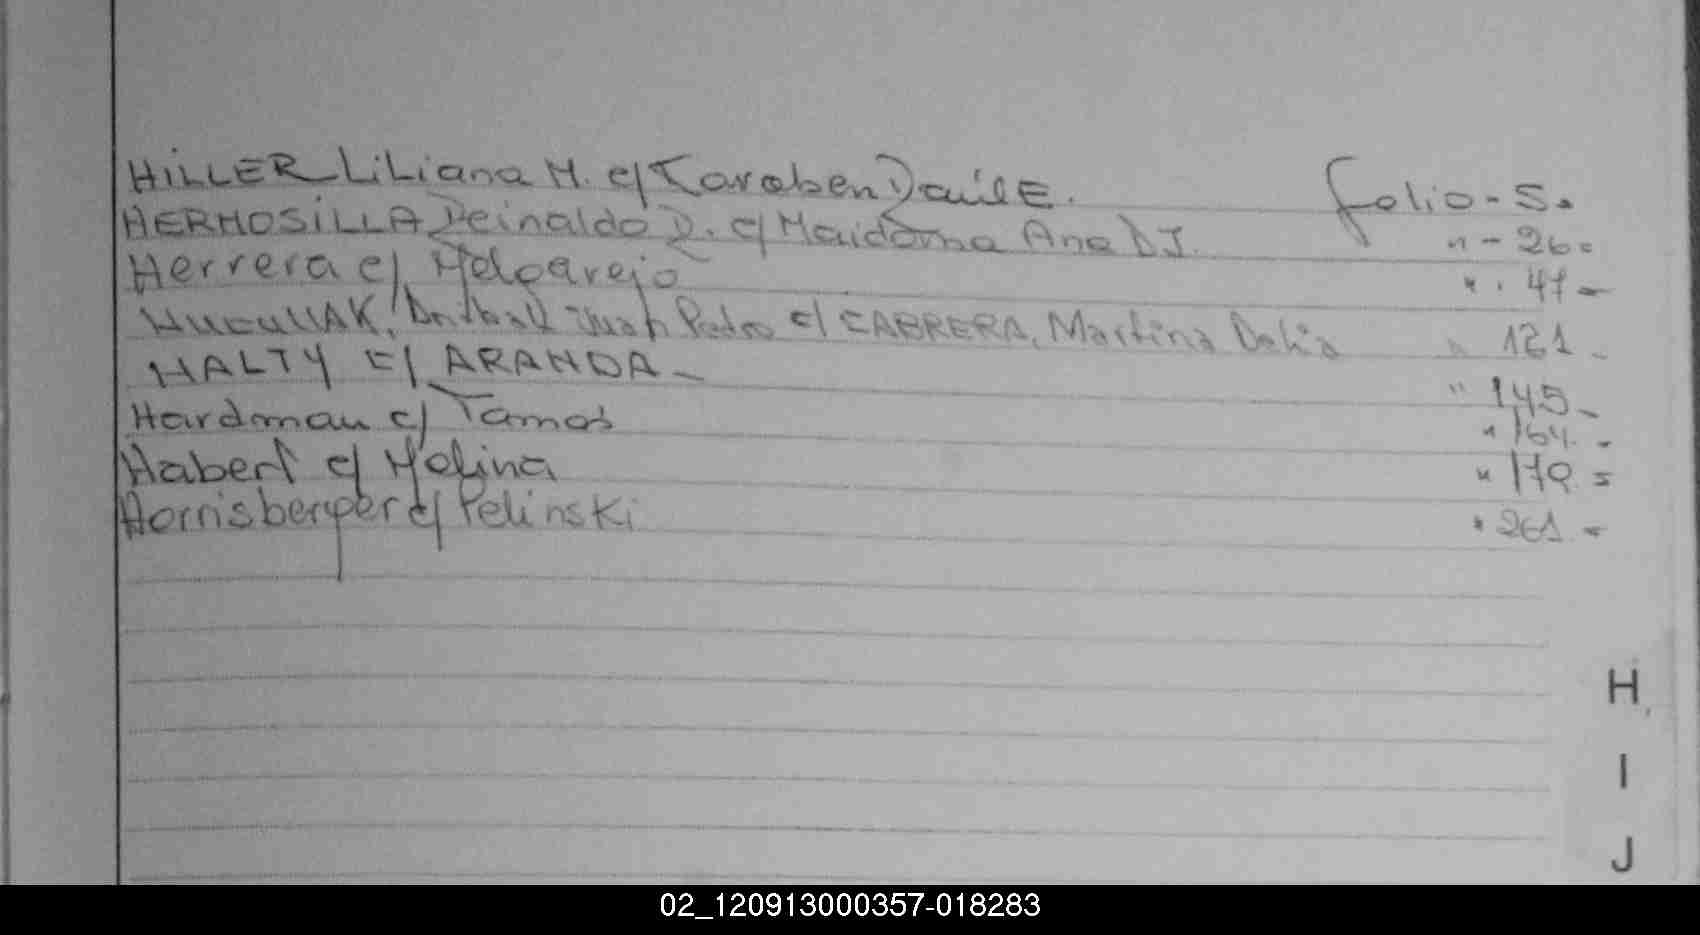 HILLER Liliana M. c/ Taraben Daniel E. folio - 5.
HERMOSILLA Reinaldo D. c/ Maidana Ana D J. " - 26 =
Herrera c/ Melgarejo " . 47 -
HucullAK, Juan Pedro c/ CABRERA, Martina Delia " 121 -
HALTY c/ ARANDA - " 145 -
Hardman c/ Tamos " 164 -
Habert c/ Molina " 170 =
Hornisberger c/ Pelinski " 261 =
H
I
J
02_120913000357-018283